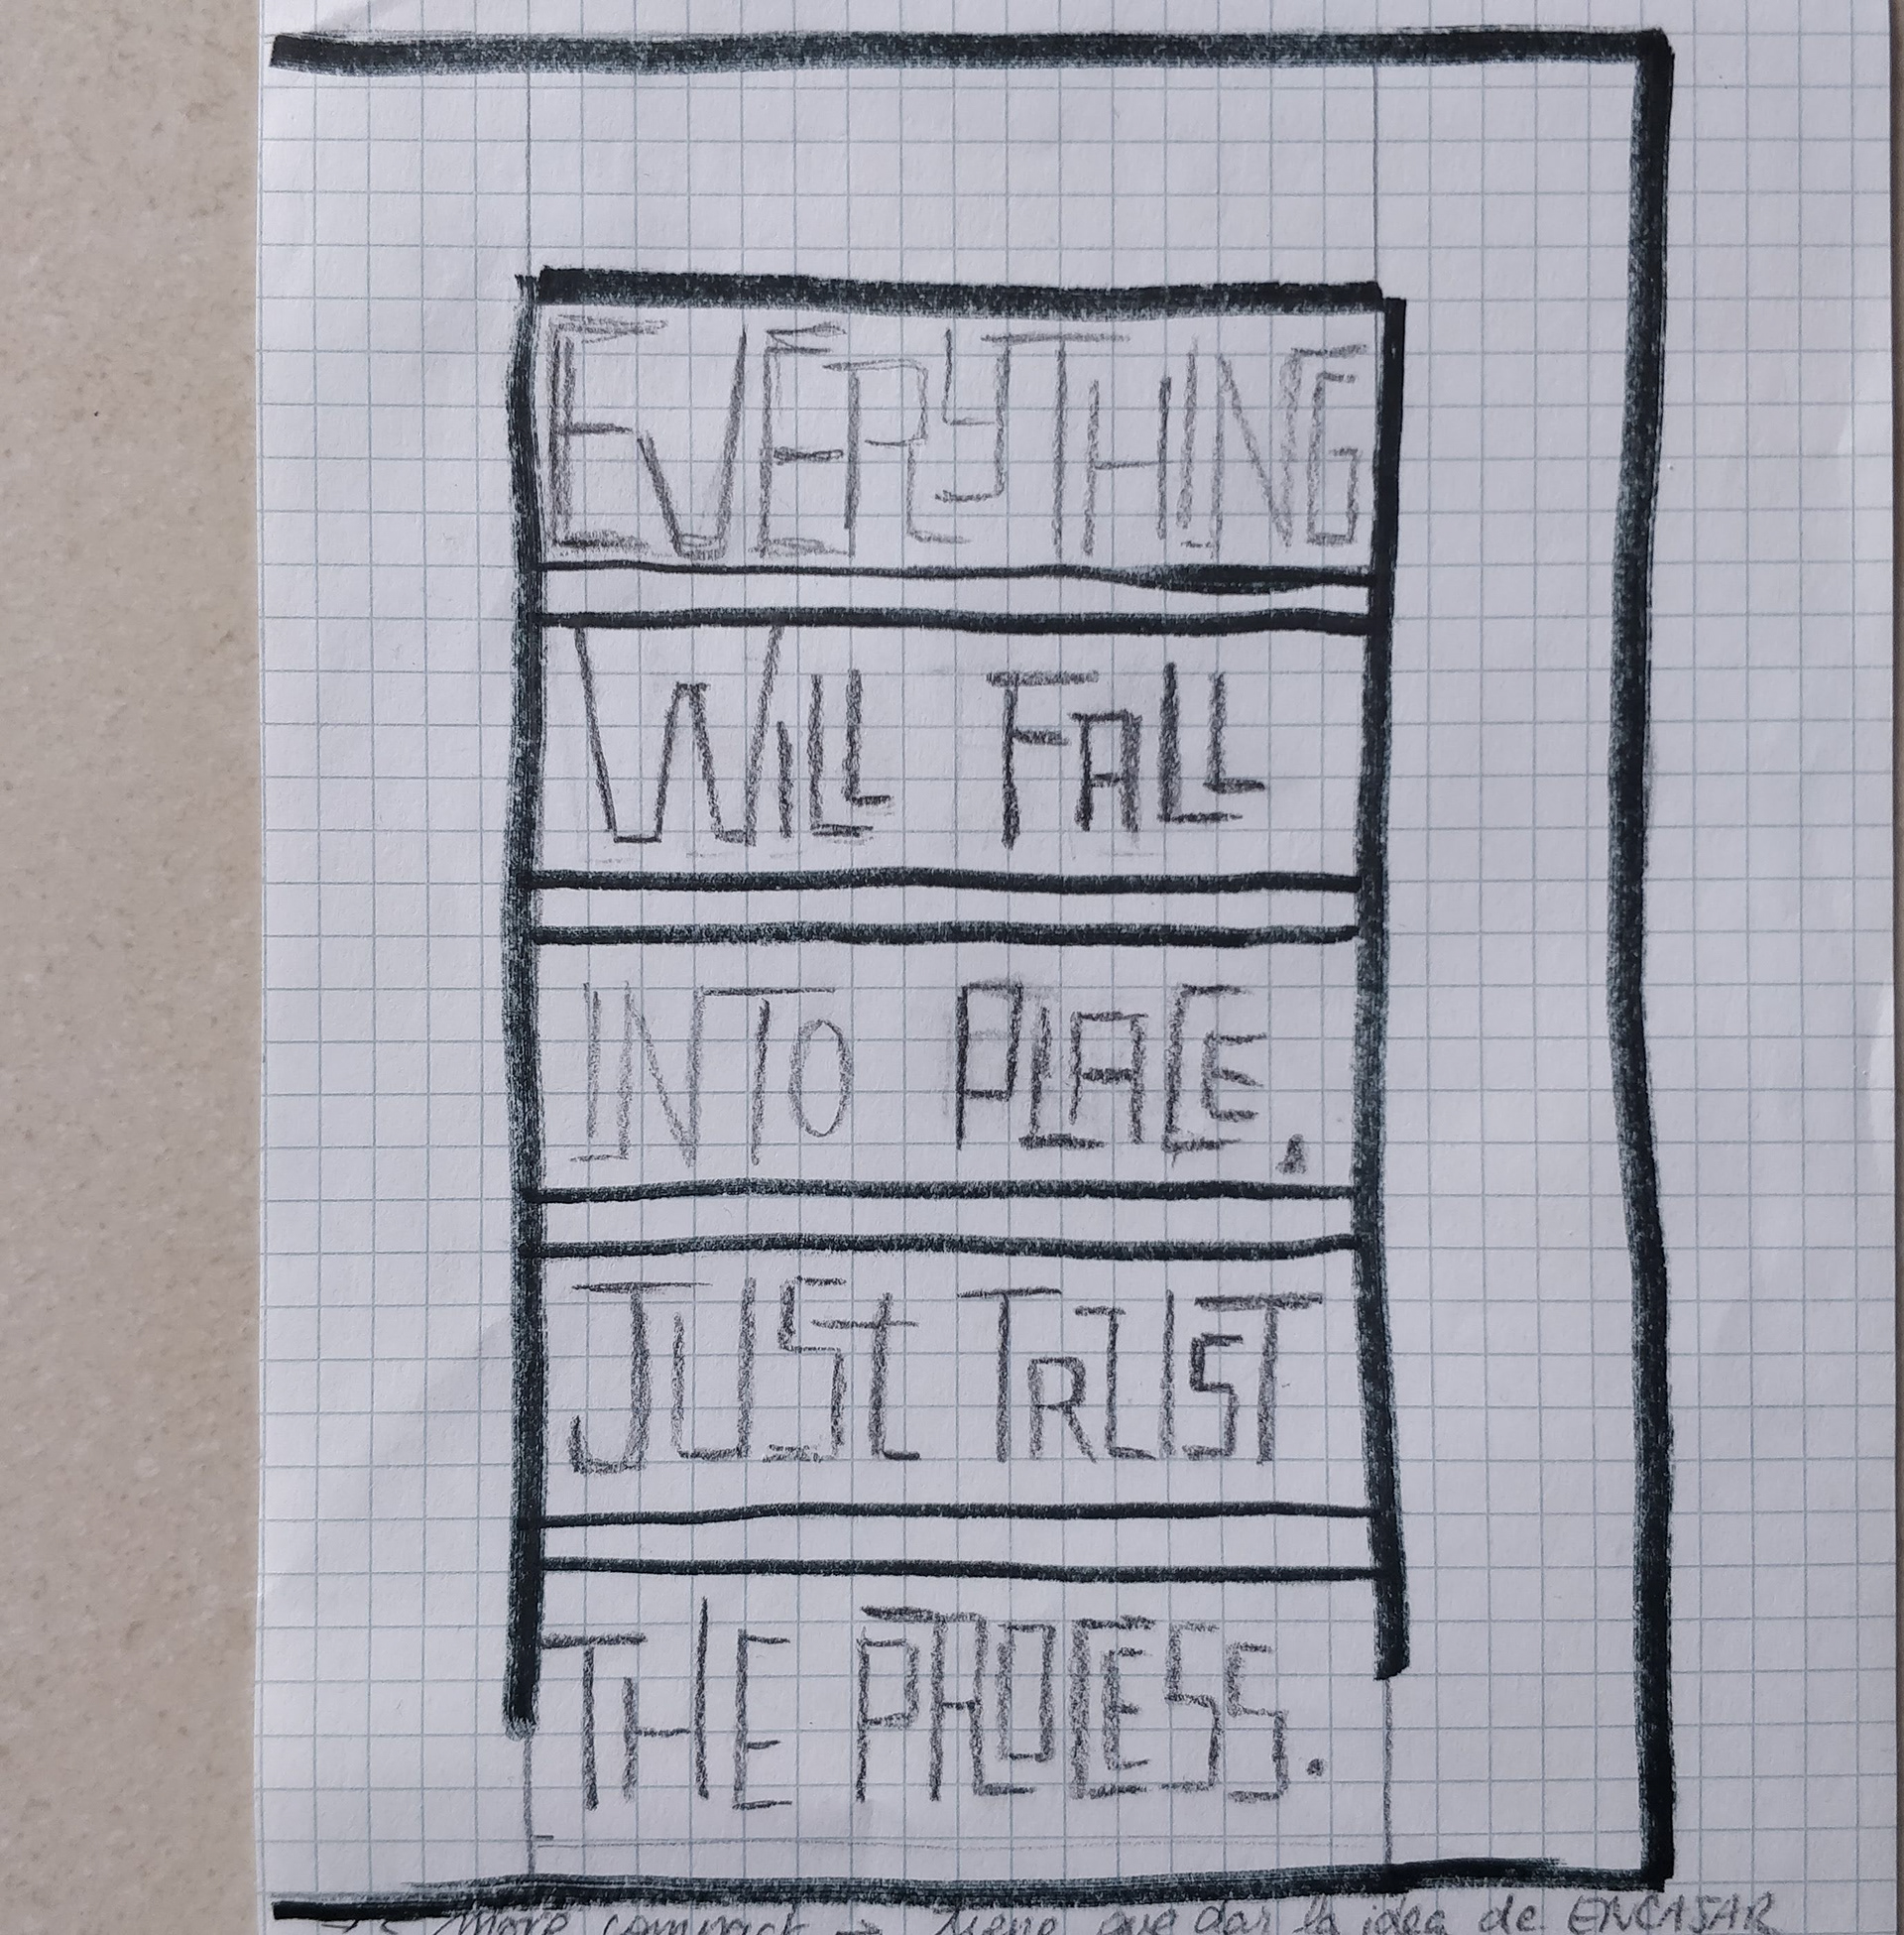 EVERYTHING
WILL FALL
INTO PLACE.
JUST TRUST
THE PROCESS.
more compact → tiene que dar la idea de ENCASAR